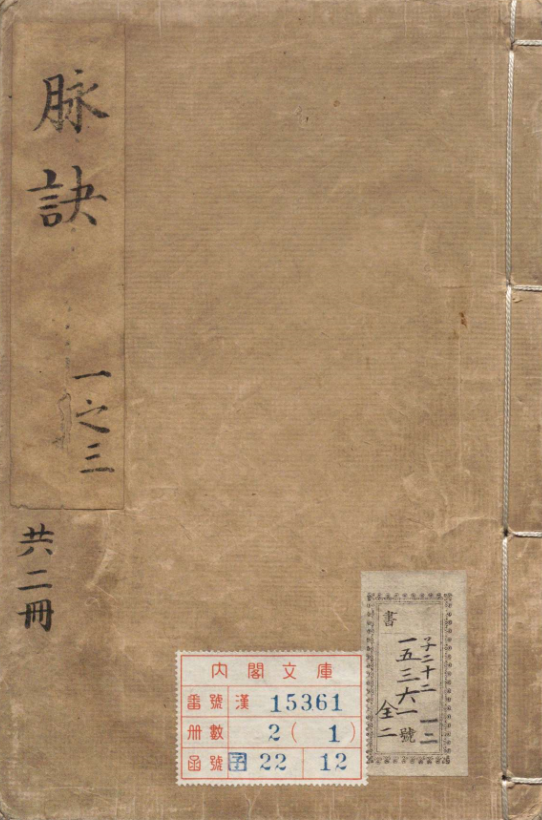 脉訣
一之三
共二冊
書
子二十二 一二
一五三六一號
全二
内閣文庫
番號 漢 15361
册數 2(1)
函號 子 22 12